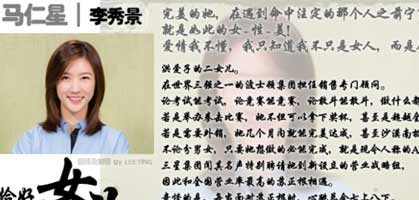 马仁星｜李秀景
完美的她，在遇到命中注定的那个人之前宁
就是如此的女-性-美！
爱情我不懂，我只知道我不只是女人，而是
洪爱子的二女儿。
在世界三强之一的波士顿集团担任销售专门顾问。
论考试能考试，论竞赛能竞赛，论数斤能数斤，做什么都
若是举办参去比赛，她不但可以拿下奖杯，甚至是超越金
若是需要外销，她几个月内就能完美达成，甚至沙漠南极
不论分男女，只要她想做的必能完成，就是现今人称的A
三星集团闻其名声特别聘请她到新设立的营业战略组，
因此和全国营业率最高的苏正根相遇。
BY LEETING
恰好
女